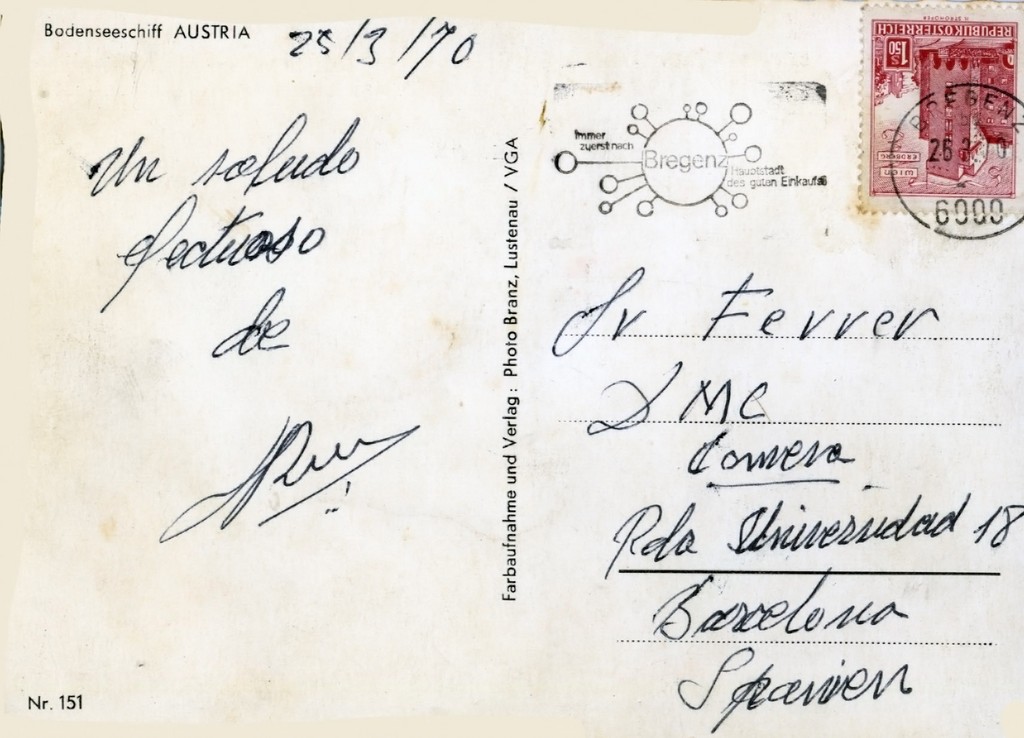 Bodenseeschiff AUSTRIA
25/3/70
Un saludo
afectuoso
de
Nr. 151
Farbaufnahme und Verlag: Photo Branz, Lustenau / VGA
Immer
zuerst nach
Bregenz
Hauptstadt
des guten Einkaufs
REPUBLIK ÖSTERREICH
S 1.50
WIEN
ERDBERG
BREGENZ
26.3.70
6900
Sr Ferrer
DMC
Rda Universidad 18
Barcelona
Spanien